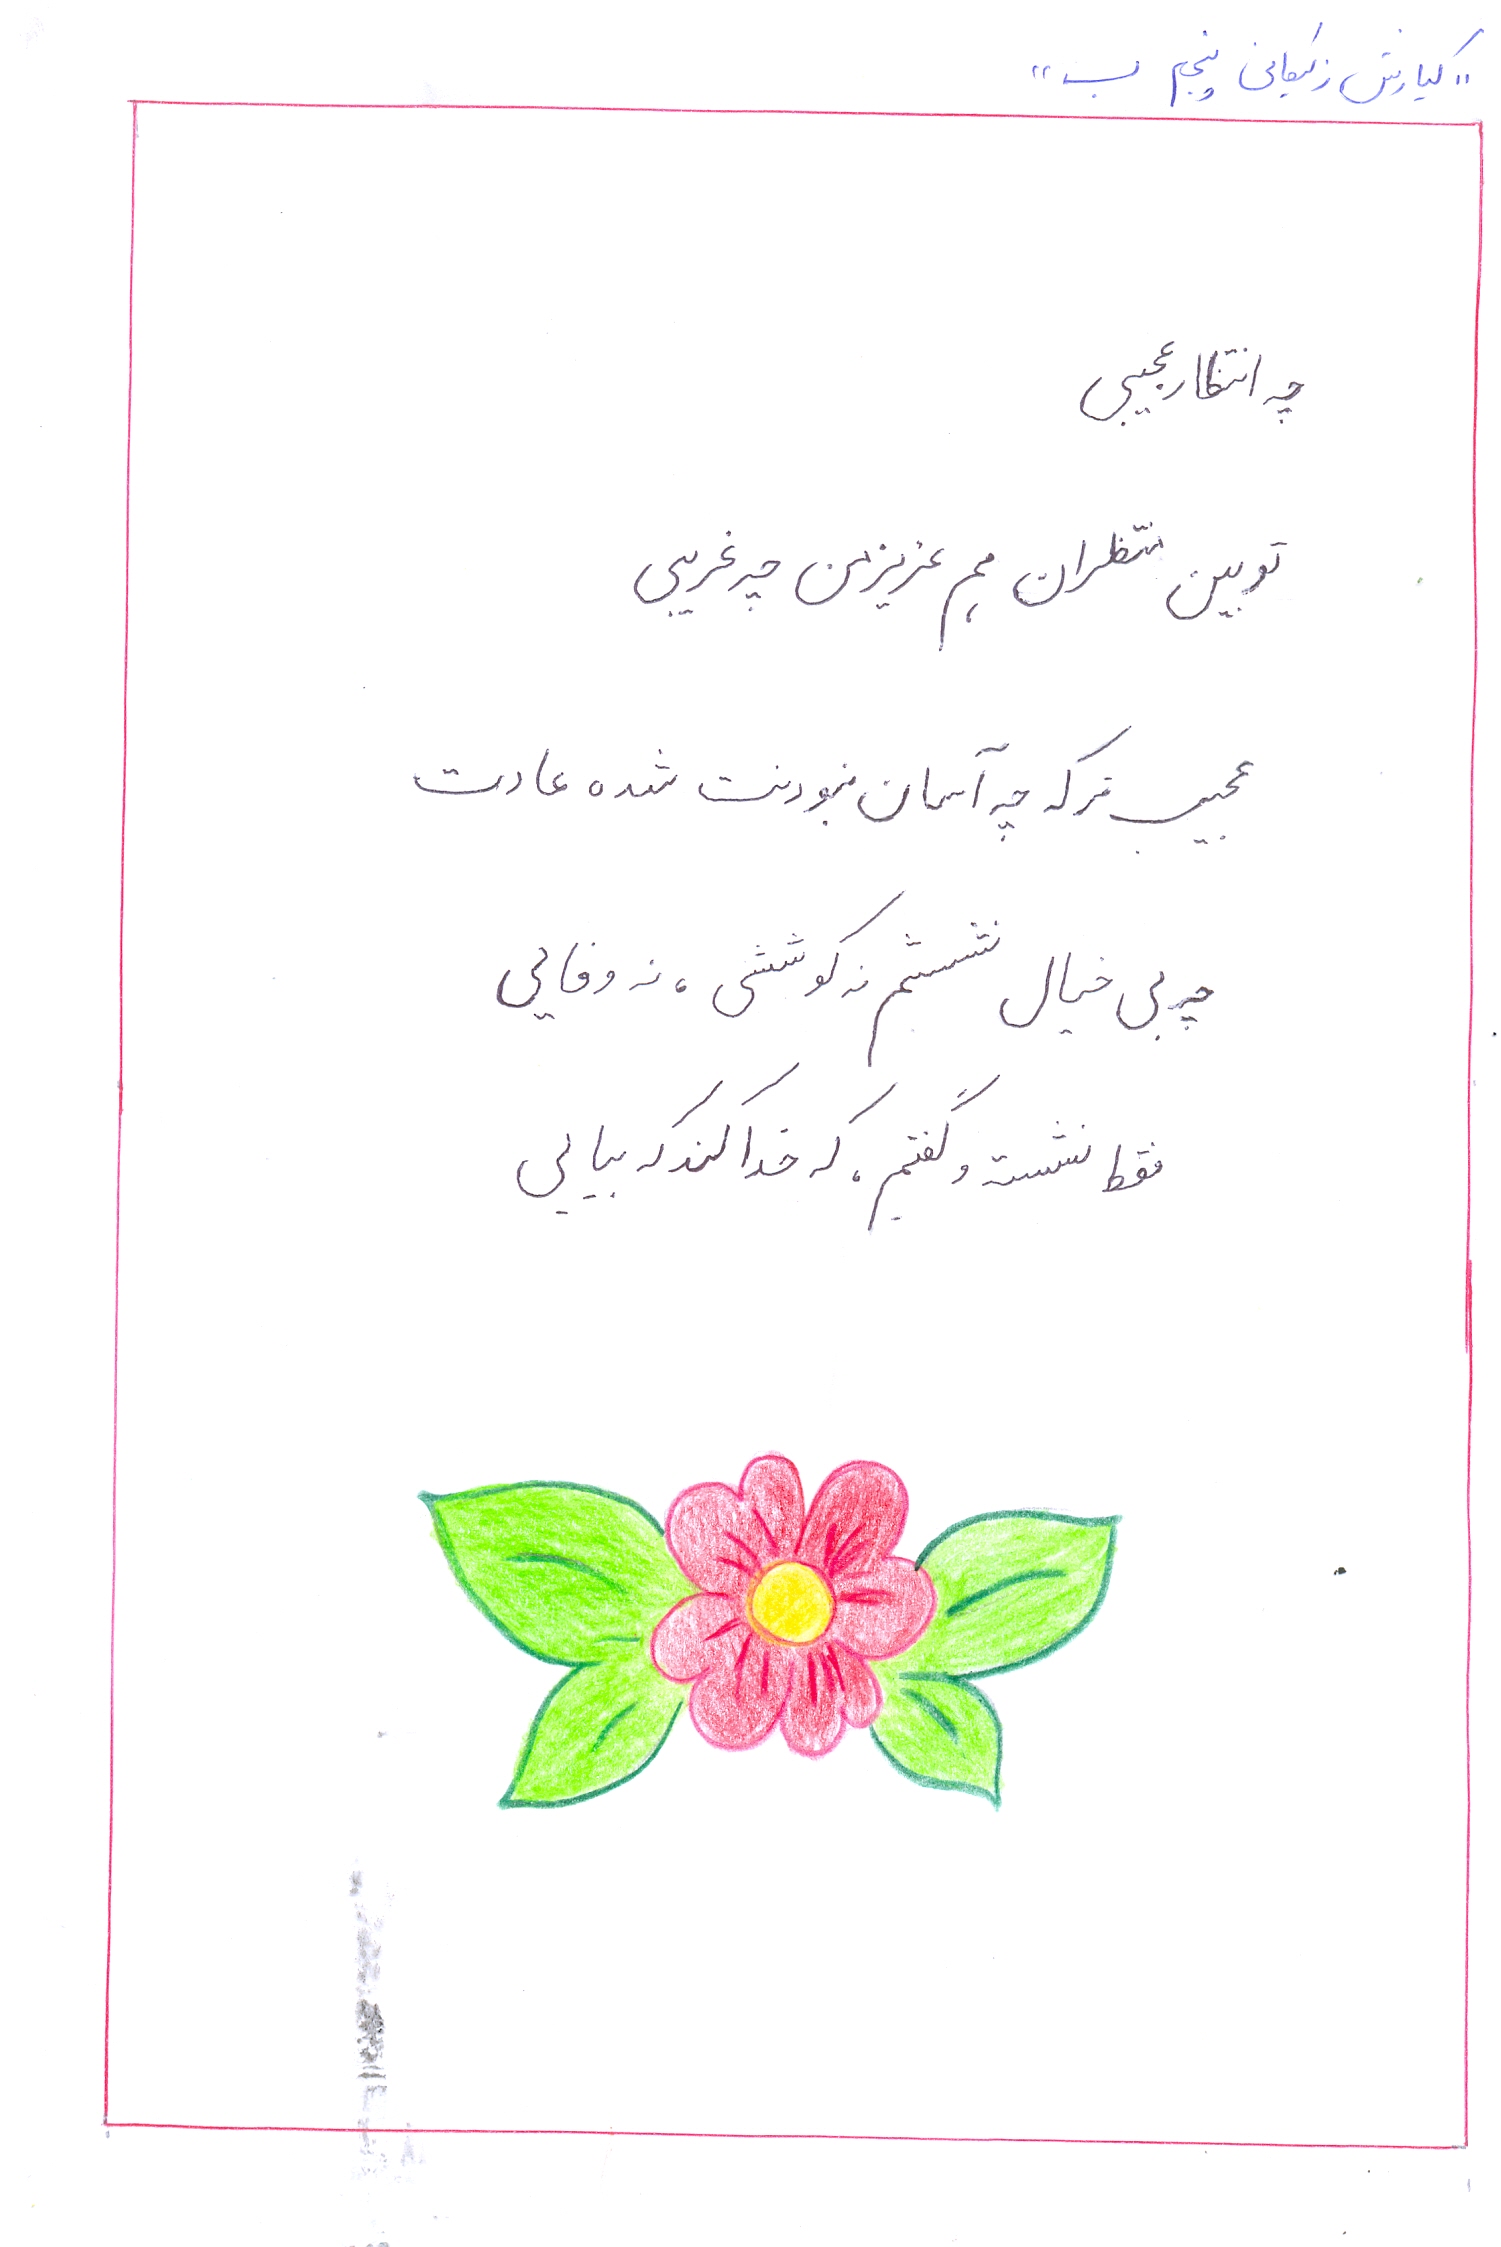 "کیارش زکیخانی پنجم ب"
چه انتظار عجیبی
تو بین منتظران هم عزیز من چه غریبی
عجیب تر که چه آسان نبودنت شده عادت
چه بی خیال نشستیم نه کوششی ، نه وفایی
فقط نشسته و گفتیم ، که خدا کند که بیایی